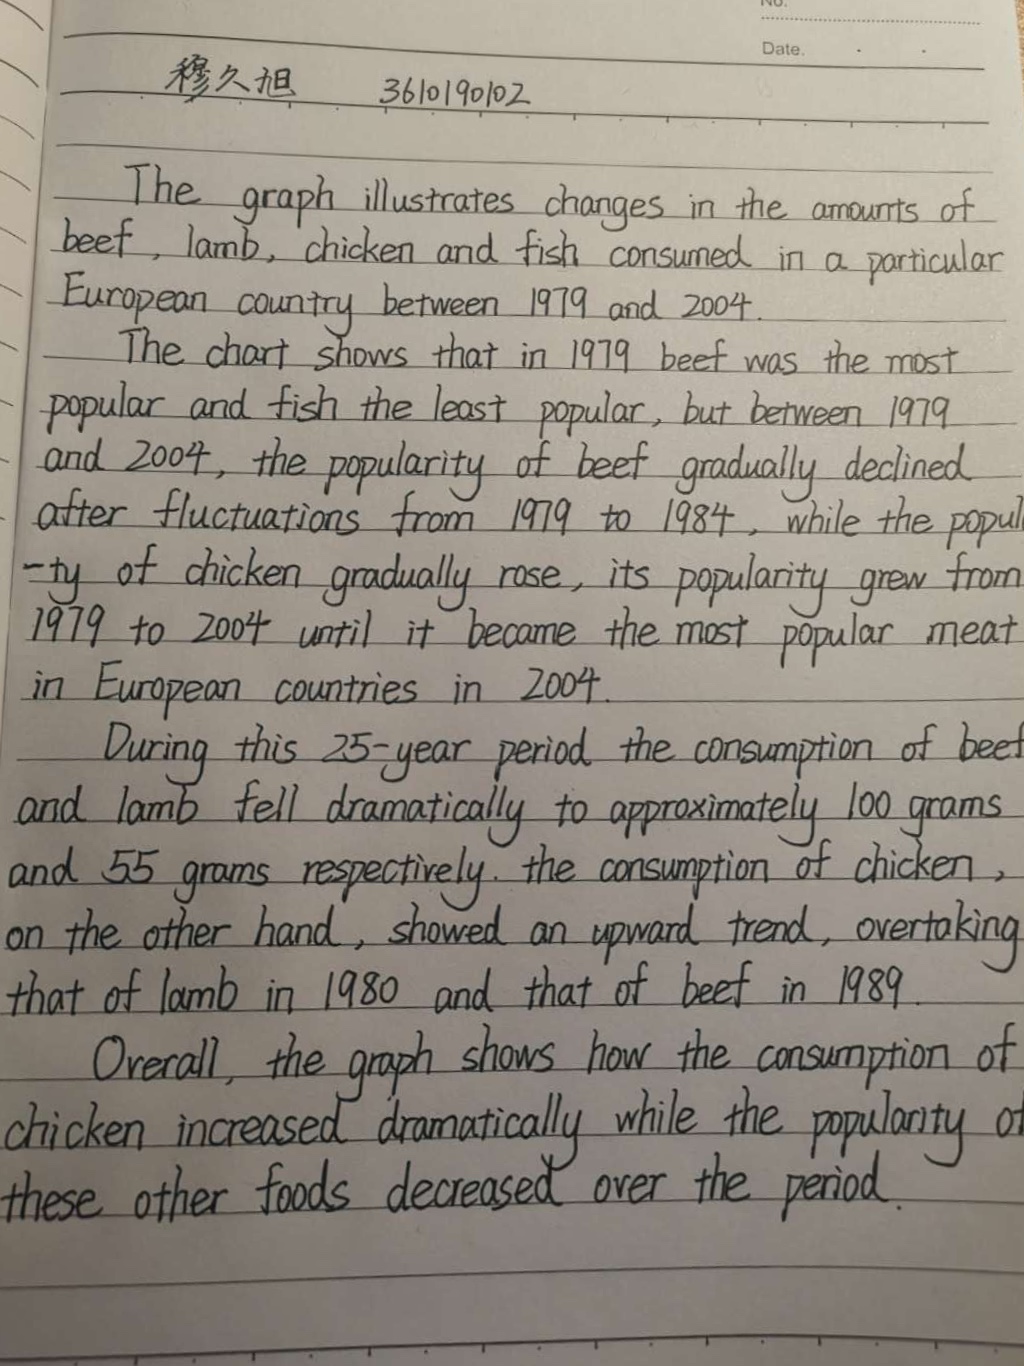 No.
Date.
穆久旭 3610190102
The graph illustrates changes in the amounts of
beef, lamb, chicken and fish consumed in a particular
European country between 1979 and 2004.
The chart shows that in 1979 beef was the most
popular and fish the least popular, but between 1979
and 2004, the popularity of beef gradually declined
after fluctuations from 1979 to 1984, while the popul
-ty of chicken gradually rose, its popularity grew from
1979 to 2004 until it became the most popular meat
in European countries in 2004.
During this 25-year period the consumption of beef
and lamb fell dramatically to approximately 100 grams
and 55 grams respectively. the consumption of chicken,
on the other hand, showed an upward trend, overtaking
that of lamb in 1980 and that of beef in 1989.
Overall, the graph shows how the consumption of
chicken increased dramatically while the popularity of
these other foods decreased over the period.